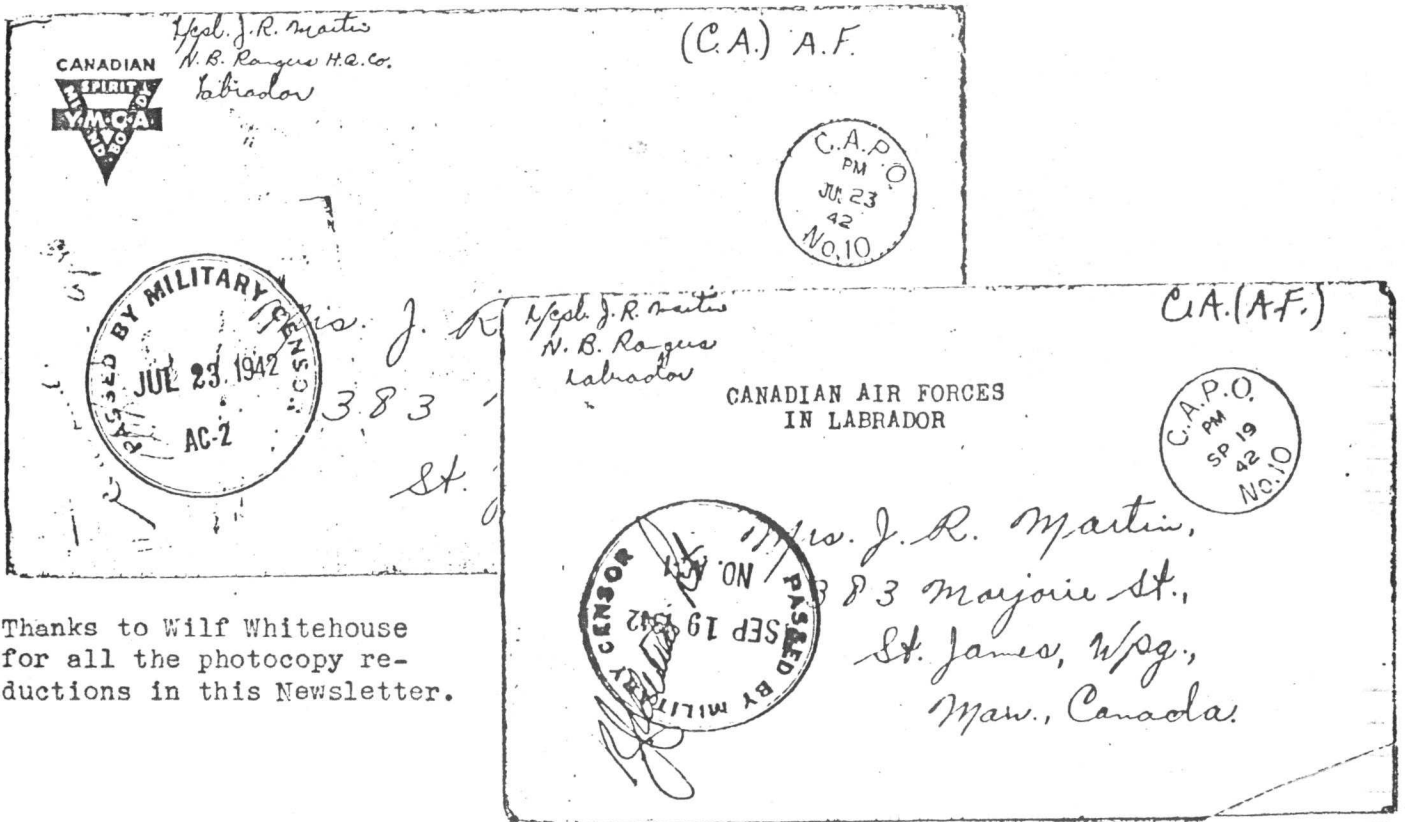 L/cpl. J. R. Martin
N. B. Rangers H.Q. Co.
Labrador
(C.A.) A.F.
CANADIAN
SPIRIT
MIND
BODY
Y.M.C.A.
C.A.P.O.
PM
JUL 23
42
No. 10
PASSED BY MILITARY CENSOR
JUL 23. 1942
AC-2
Mrs. J. R
383
St. J
L/cpl. J. R. Martin
N. B. Rangers
Labrador
C.A. (A.F.)
CANADIAN AIR FORCES
IN LABRADOR
C.A.P.O.
PM
SP 19
42
No. 10
PASSED BY MILITARY CENSOR
SEP 19 1942
NO.
Mrs. J. R. Martin,
383 Marjorie St.,
St. James, Wpg.,
Man., Canada.
Thanks to Wilf Whitehouse
for all the photocopy re-
ductions in this Newsletter.